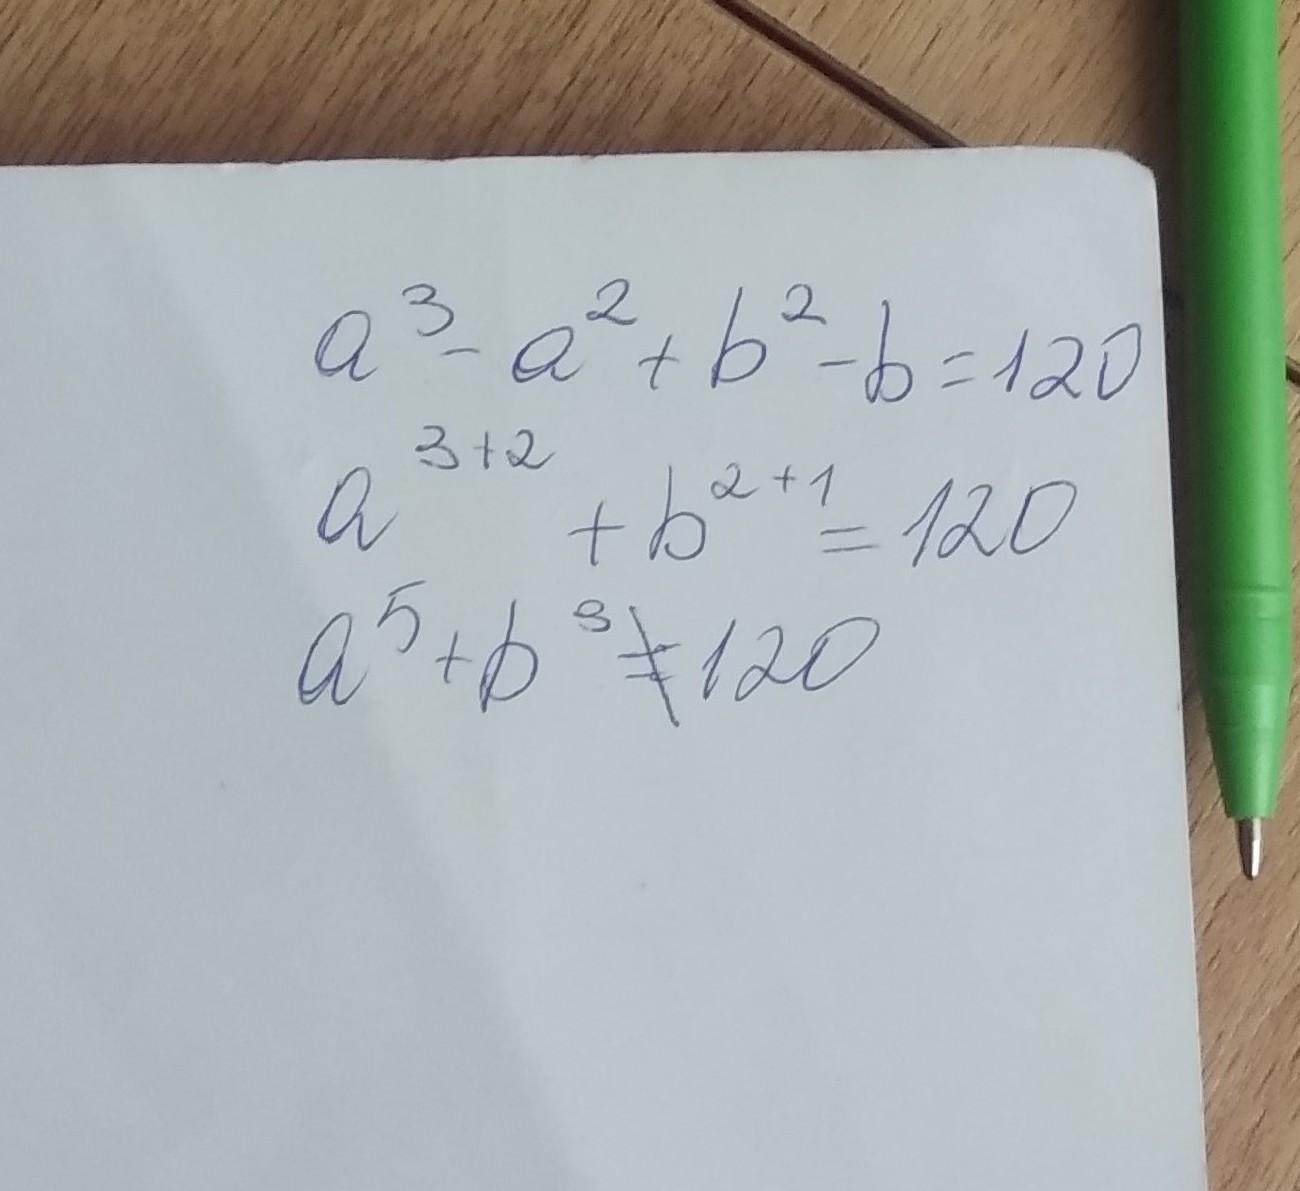 a³ - a² + b² - b = 120
a³⁺² + b²⁺¹ = 120
a⁵ + b³ ≠ 120